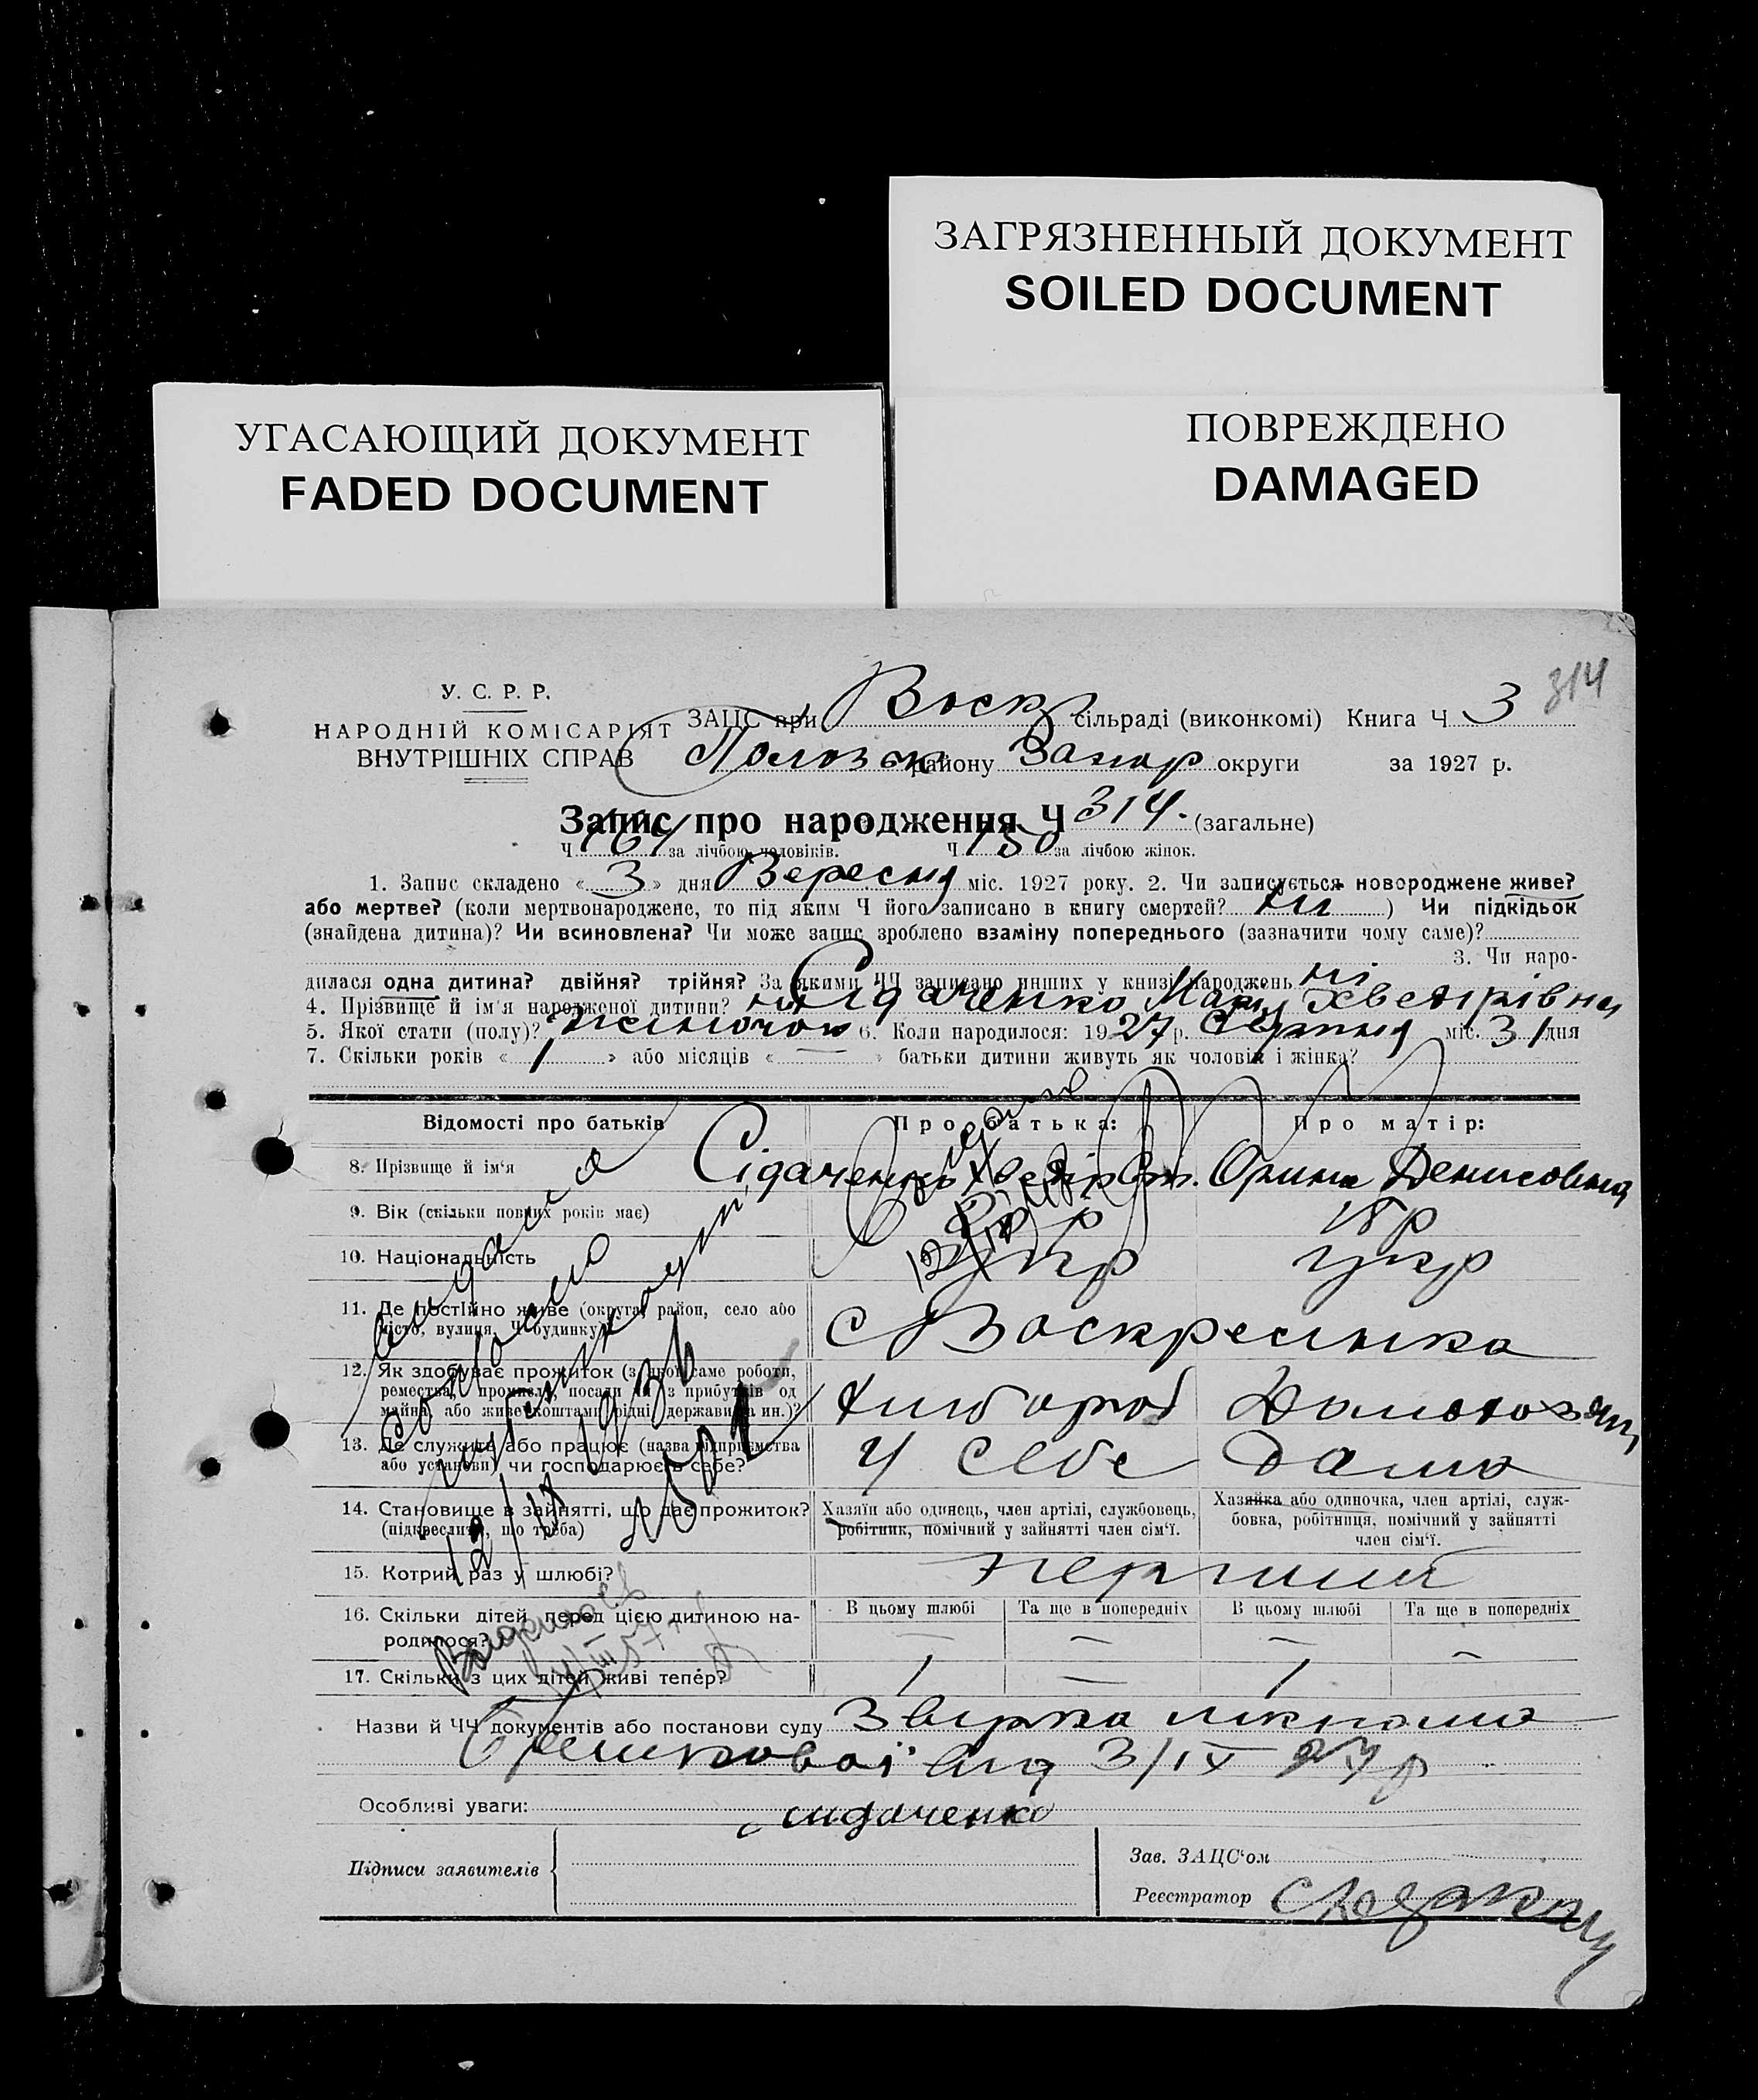 ЗАГРЯЗНЕННЫЙ ДОКУМЕНТ
SOILED DOCUMENT
УГАСАЮЩИЙ ДОКУМЕНТ
FADED DOCUMENT
ПОВРЕЖДЕНО
DAMAGED
314
У. С. Р. Р.
НАРОДНІЙ КОМІСАРІЯТ
ВНУТРІШНІХ СПРАВ
ЗАЦС при Воскр сільраді (виконкомі) Книга Ч 3
Пологськ району Запор округи за 1927 р.
Запис про народження Ч 314. (загальне)
Ч 164 за лічбою чоловіків. Ч 150 за лічбою жінок.
1. Запис складено « 3 » дня Вересня міс. 1927 року. 2. Чи записується новороджене живе?
або мертве? (коли мертвонароджене, то під яким Ч його записано в книгу смертей? ні ) Чи підкідьок
(знайдена дитина)? Чи всиновлена? Чи може запис зроблено взаміну попереднього (зазначити чому саме)?
3. Чи наро-
дилася одна дитина? двійня? трійня? За якими ЧЧ записано инших у книзі народжень ні
4. Прізвище й ім'я народженої дитини? Сідаченко Марія Хведірівна
5. Якої стати (полу)? жіночої 6. Коли народилося: 1927 р. Серпня міс. 31 дня
7. Скільки років « 1 » або місяців « — » батьки дитини живуть як чоловік і жінка?
Відомості про батьків
Про батька:
Про матір:
8. Прізвище й ім'я Сідаченко Хведір Ст. Орина Денисовна
9. Вік (скільки повних років має) 20 р 18 р
10. Національність Укр Укр
11. Де постійно живе (округа, район, село або
місто, вулиця, Ч будинку)
с Воскресенка
12. Як здобуває прожиток (з якої саме роботи,
ремества, промислу, посади чи з прибутків од
майна, або живе коштами рідні, держави та ин.)?
Хлібороб Домохозяй
13. Де служить або працює (назва підприємства
або установи) чи господарює в себе?
У себе Дома
14. Становище в зайнятті, що дає прожиток?
(підкреслити, що треба)
Хазяїн або одинець, член артілі, службовець,
робітник, помічний у зайнятті член сім'ї.
Хазяйка або одиночка, член артілі, служ-
бовка, робітниця, помічний у зайнятті
член сім'ї.
15. Котрий раз у шлюбі? перший
16. Скільки дітей перед цією дитиною на-
родилося?
В цьому шлюбі Та ще в попередніх В цьому шлюбі Та ще в попередніх
— — — —
17. Скільки з цих дітей живі тепер? 1 — 1
Назви й ЧЧ документів або постанови суду
від 3/IX 27 р
Особливі уваги: сидаченко
Підписи заявителів
Зав. ЗАЦС'ом
Реєстратор